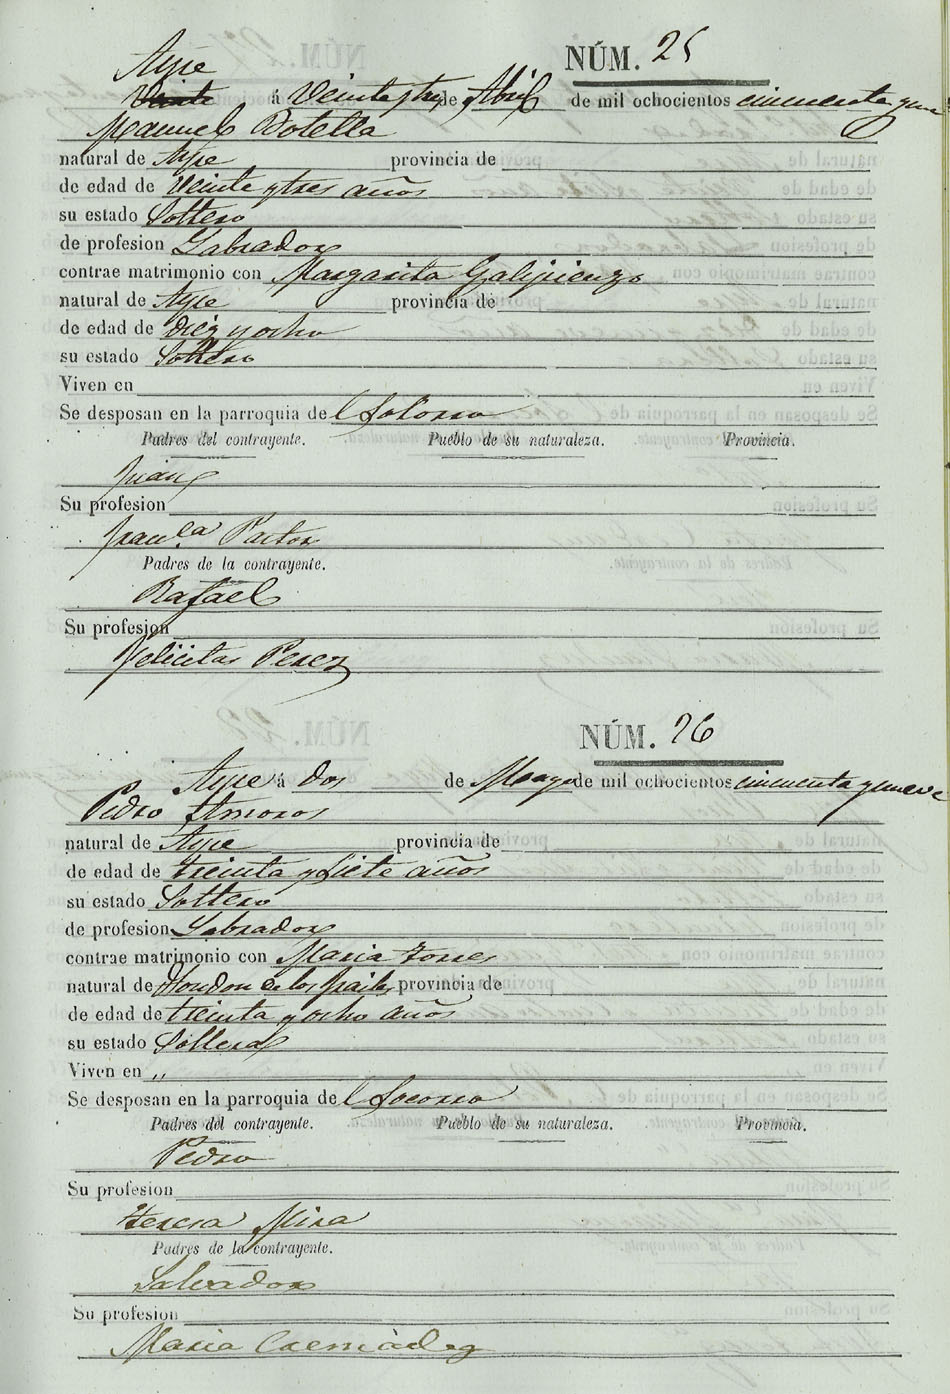 NÚM. 25
Aspe
á Veinte y tres de Abril de mil ochocientos cincuenta y nueve
Manuel Botella
natural de Aspe provincia de
de edad de Veinte y tres años
su estado Soltero
de profesion Labrador
contrae matrimonio con Margarita Galipienzo
natural de Aspe provincia de
de edad de Diez y ocho
su estado Soltero
Viven en
Se desposan en la parroquia del Socorro
Padres del contrayente. Pueblo de su naturaleza. Provincia.
Juan
Su profesion
Fran.ca Pastor
Padres de la contrayente.
Rafael
Su profesion
Felicitas Perez
NÚM. 26
Aspe á dos de Mayo de mil ochocientos cincuenta y nueve
Pedro Amoros
natural de Aspe provincia de
de edad de treinta y siete años
su estado Soltero
de profesion Labrador
contrae matrimonio con Maria Torres
natural de Hondon de los frailes provincia de
de edad de treinta y ocho años
su estado Soltera
Viven en "
Se desposan en la parroquia del Socorro
Padres del contrayente. Pueblo de su naturaleza. Provincia.
Pedro
Su profesion
Teresa Mira
Padres de la contrayente.
Salvador
Su profesion
Maria Cremádes